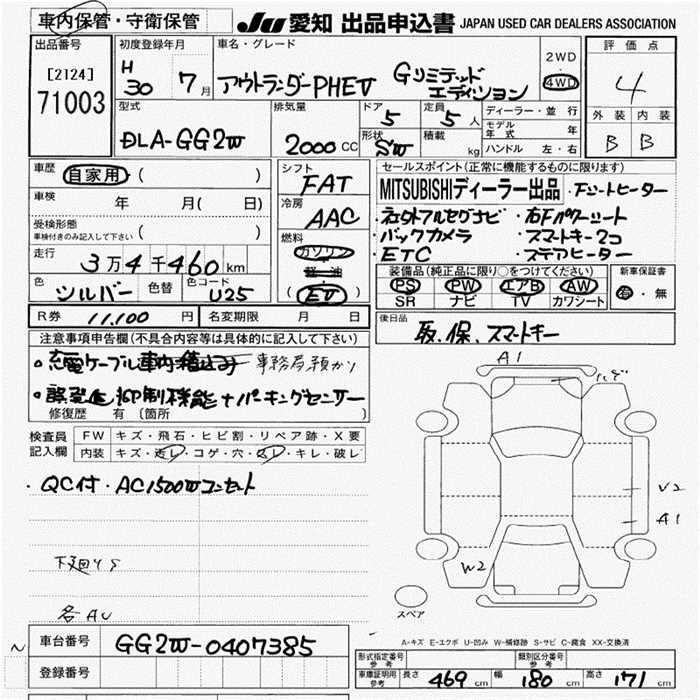 車内保管・守衛保管
JU 愛知 出品申込書 JAPAN USED CAR DEALERS ASSOCIATION
出品番号
[2124]
71003
初度登録年月
H 30 7月
車名・グレード
アウトランダーPHEV Gリミテッドエディション
2WD
4WD
評価点
4
外装 内装
B B
型式
DLA-GG2W
排気量
2000 CC
ドア
5
形状
SW
定員
5人
積載
kg
ディーラー・並行
モデル年式
ハンドル 左・右
車歴 自家用・( )
車検 年 月( 日)
受検形態
車検付きのみ記入して下さい ( )
走行
3万4千460km
色
シルバー
色替
色コード
U25
シフト
FAT
冷房
AAC
燃料
ガソリン
軽油
(EV)
セールスポイント(正常に機能するものに限ります)
MITSUBISHIディーラー出品
・Fシートヒーター
・社外フルセグナビ ・右Fパワーシート
・バックカメラ ・スマートキー2コ
・ETC ・ステアヒーター
装備品(純正品に限り○をつけてください)
PS PW エアB AW
SR ナビ TV カワシート
新車保証書
有・無
R券 11,100 円
名変期限 月 日
後日品
取、保、スマートキー
注意事項申告欄(不具合内容等は具体的に記入して下さい)
○充電ケーブル車内積込み 事務局預かり
○誤発進抑制機能+パーキングセンサー
修復歴 有 〔箇所
検査員記入欄
FW キズ・飛石・ヒビ割・リペア跡・X要
内装 キズ・汚レ・コゲ・穴・スレ・キレ・破レ
・QC付・AC1500Wコンセント
下廻りS
各AU
A1
U2
A1
W2
スペア
A-キズ E-エクボ U-凹み W-補修跡 S-サビ C-腐食 XX-交換済
車台番号 GG2W-0407385
登録番号
型式指定番号
参考
類別区分番号
参考
車庫証明用
参考
長さ 469 cm 幅 180 cm 高さ 171 cm